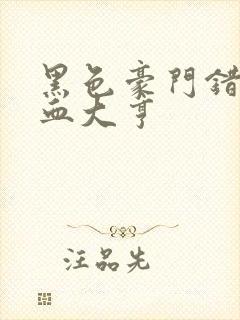 黑色豪門錯
血大亨
汪品先